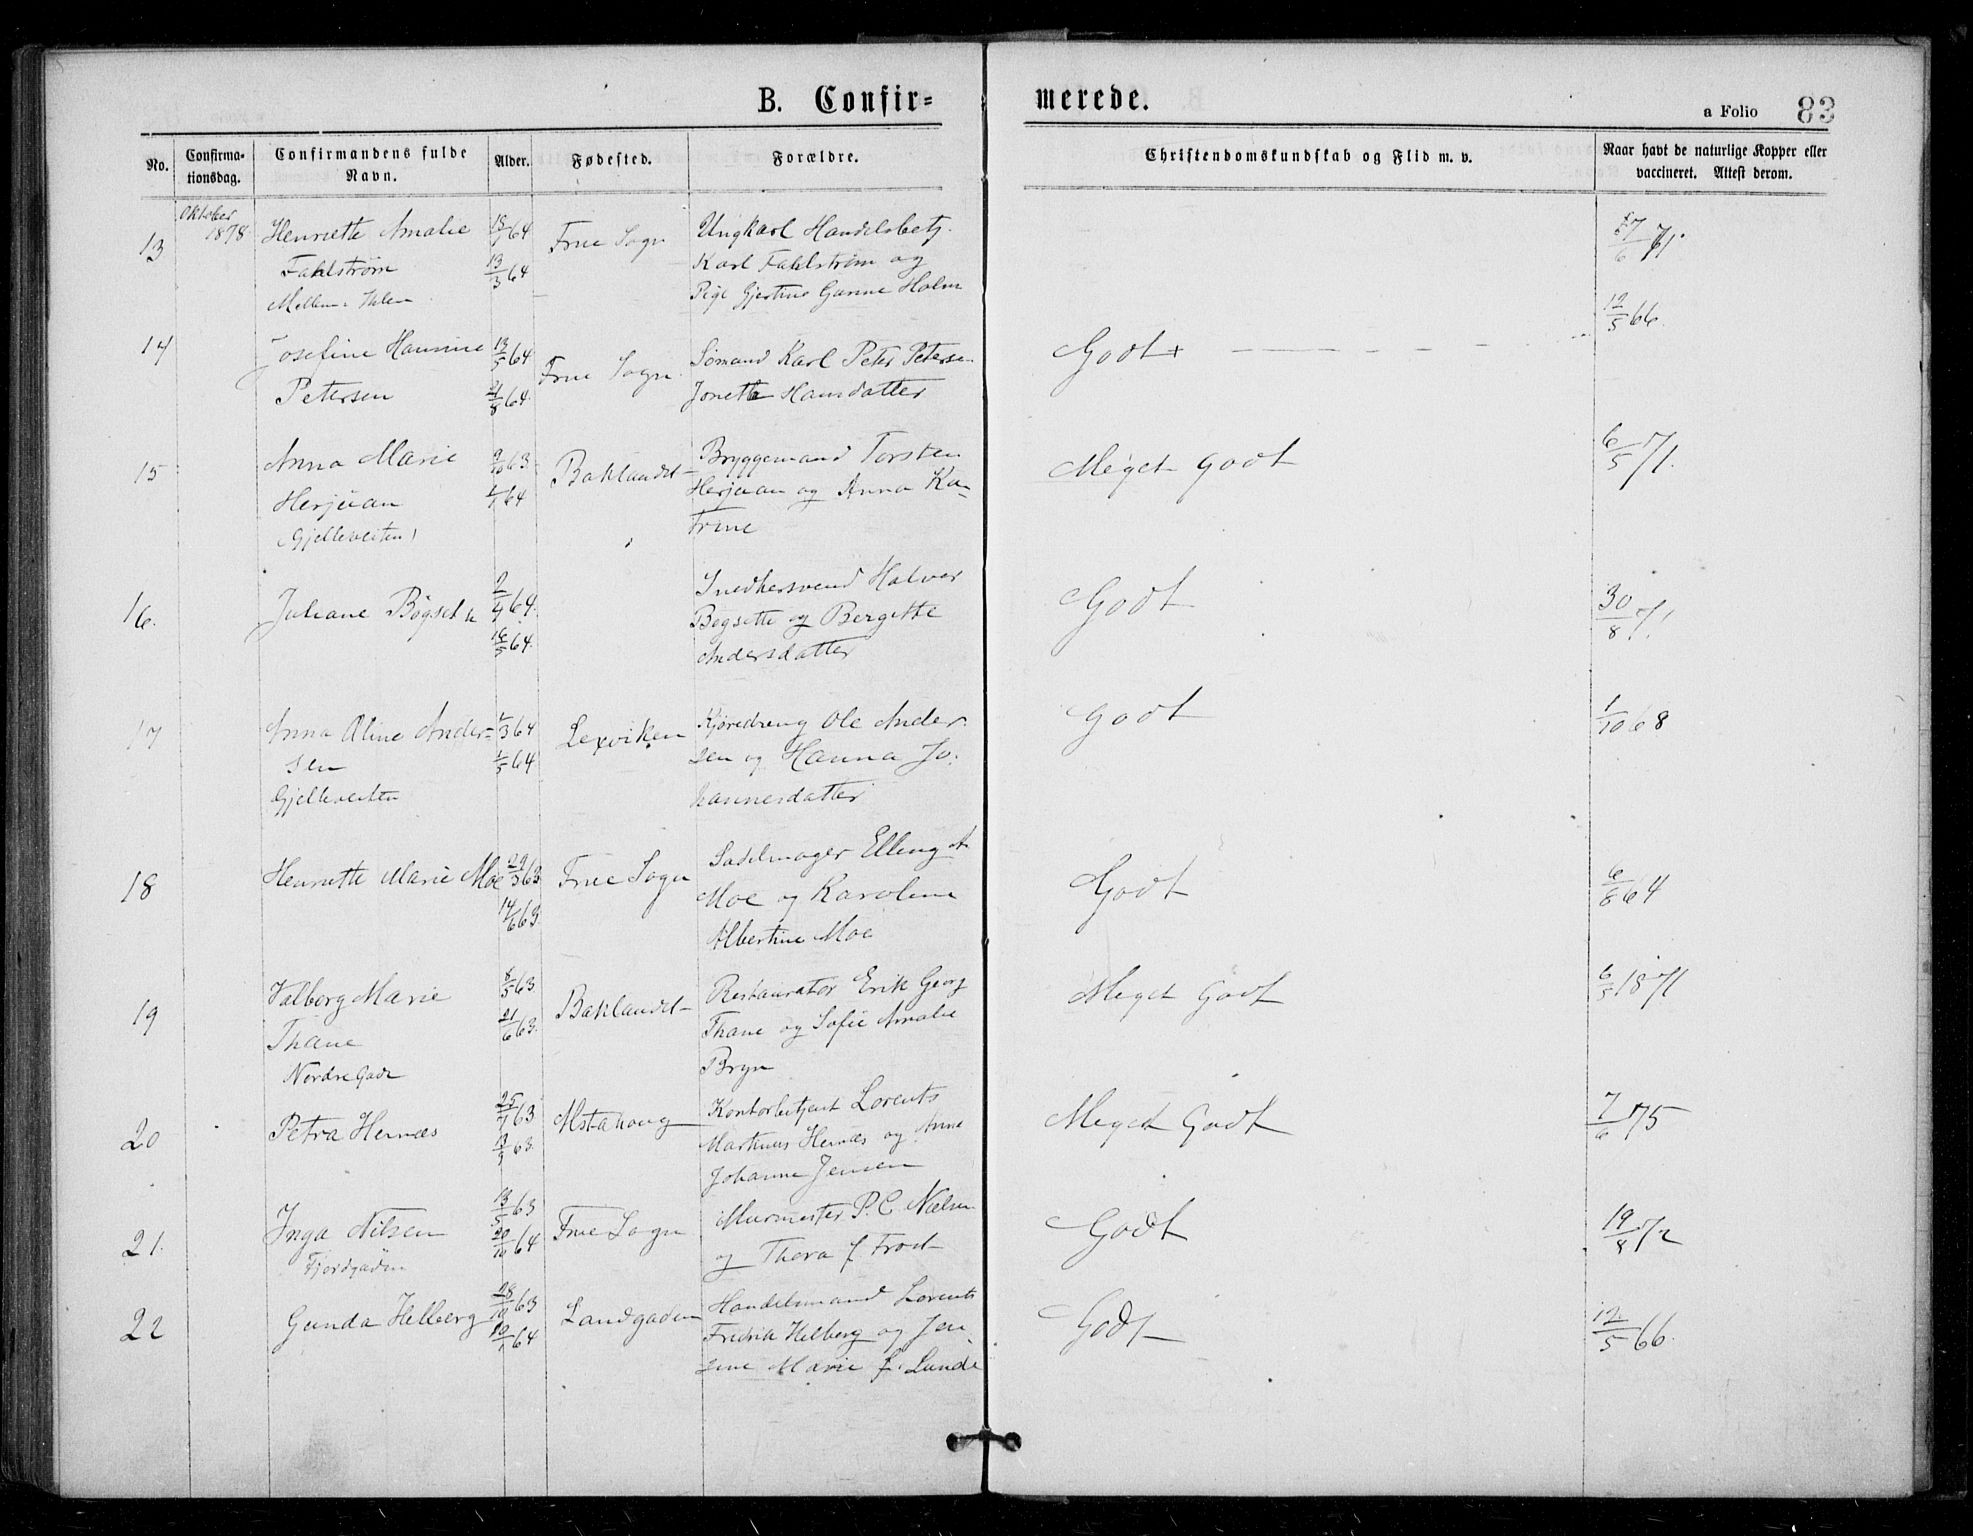 B. Confir=
merede.
a Folio 83
No.
Confirma-
tionsdag.
Confirmandens fulde
Navn.
Alder.
Fødested.
Forældre.
Christendomskundskab og Flid m. v.
Naar havt de naturlige Kopper eller
vaccineret. Attest derom.
Oktober
1878
13
Henriette Amalie
Fahlstrøm
13/3 64
Frue Sogn
Ungkarl Handelsbetj.
Karl Fahlstrøm og
Pige Gjertine Ganne Holm
14
Josefine Hansine
Petersen
13/5 64
21/8 64
Frue Sogn
Sømand Karl Peter Petersen
Jonette Hansdatter
Godt
12/5 66
15
Anna Marie
Herjuan
(Gjelleveiten)
9/10 63
1/1 64
Baklandet
Bryggemand Torsten
Herjuan og Anna Ka-
trine
Meget godt
6/5 71.
16.
Juliane Bøgseth
2/4 64.
16/5 64.
Snedkersvend Halvor
Bøgsette og Bergitte
Andersdatter
Godt
30/8 71.
17
Anna Oline Ander=
sen
Gjelleveiten
1/3 64
1/5 64
Lexviken
Kjøredreng Ole Ander
sen og Hanna Jo.
hannesdatter
Godt
1/10 68
18
Henriette Marie Moe
29/3 63
14/6 63.
Frue Sogn
Sadelmager Elling A
Moe og Karoline
Albertine Moe
Godt
6/8 64
19
Valborg Marie
Thane
Nordre Gade
8/5 63
21/6 63.
Baklandet
Restauratør Erik Georg
Thane og Sofie Amalie
Bryn
Meget Godt
6/5 1871
20
Petra Hernæs
25/7 63
13/9 63.
Alstahoug
Kontorbetjent Lorents
Martinus Hernæs og Anne
Johanne Jensen
Meget Godt
7/6 75
21.
Inga Nilsen
Fjordgaden
13/5 63
20/10 64
Frue Sogn
Murmester P. C. Nielsen
og Thora f. Trod
Godt
19/8 72
22
Gunda Helberg
28/10 63
10/1 64
Sandgaden
Handelsmand Lorents
Fredrik Helberg og Jen
sine Marie f. Lunde
Godt
12/5 66.